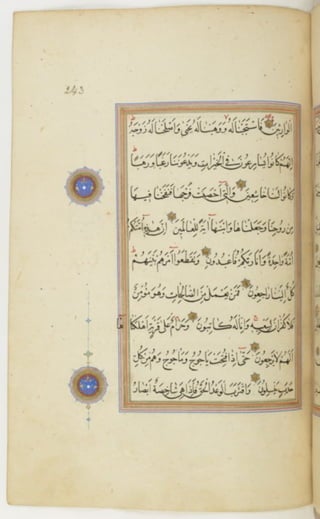 243
الوارثين فاستجبنا له ووهبنا له يحيى واصلحنا له زوجه
انهم كانوا يسارعون في الخيرات ويدعوننا رغبا ورهبا
وكانوا لنا خاشعين والتي احصنت فرجها فنفخنا فيها
من روحنا وجعلناها وابنها اية للعالمين ان هذه امتكم
امة واحدة وانا ربكم فاعبدون وتقطعوا امرهم بينهم
كل الينا راجعون فمن يعمل من الصالحات وهو مؤمن
فلا كفران لسعيه وانا له كاتبون وحرام على قرية اهلكناها
انهم لا يرجعون حتى اذا فتحت ياجوج وماجوج وهم من كل
حدب ينسلون واقترب الوعد الحق فاذا هي شاخصة ابصار